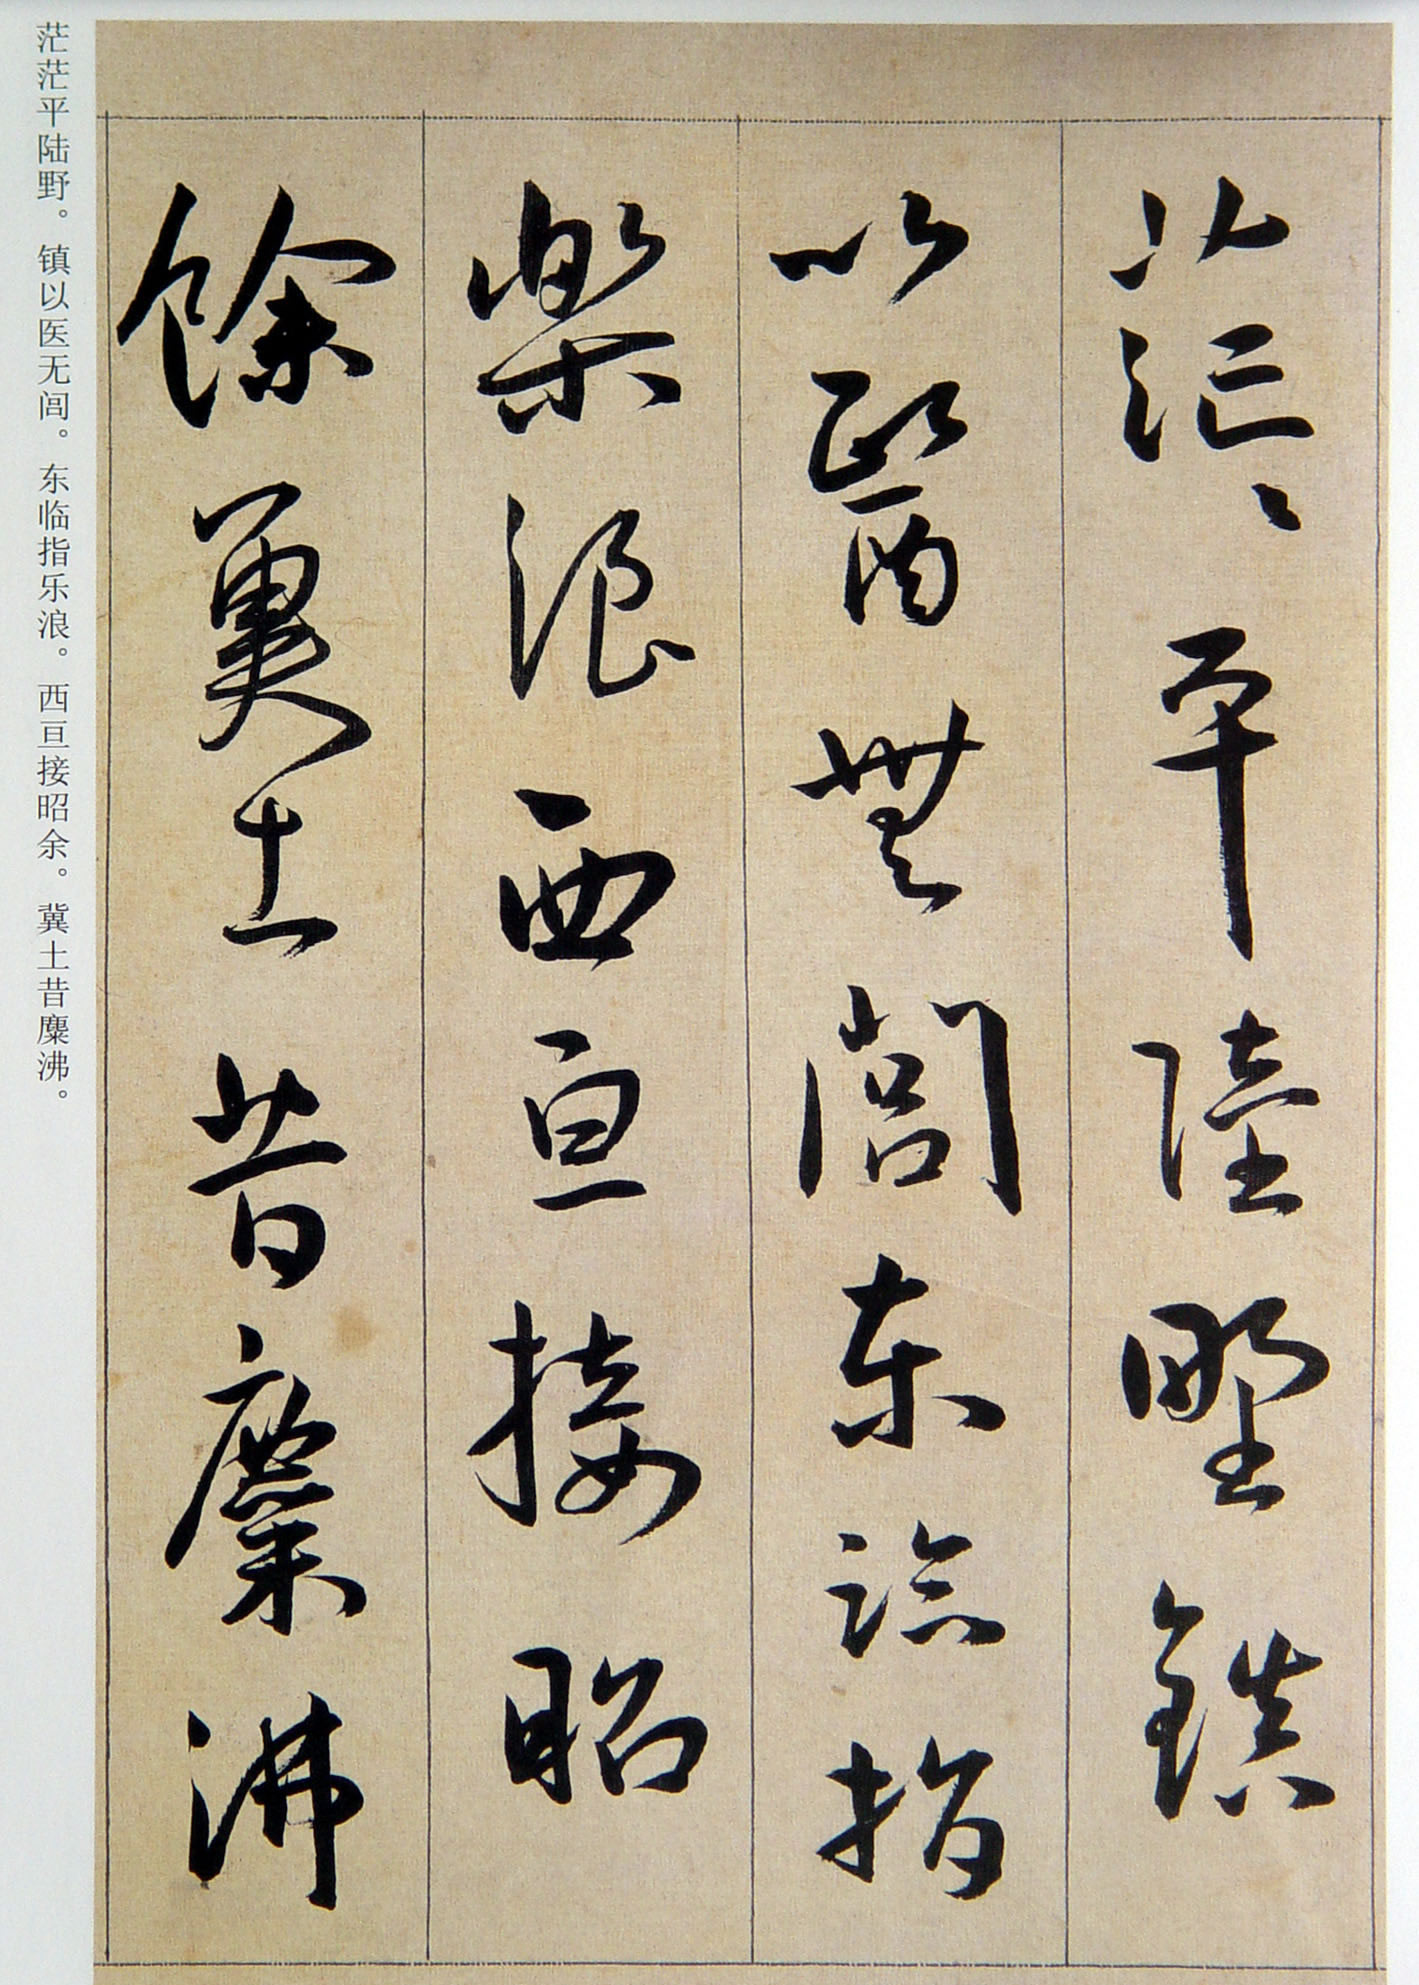 茫茫平陆野。镇以医无闾。东临指乐浪。西亘接昭余。冀土昔麋沸。
茫〻平陸野鎮
以醫無閭东臨指
樂浪西亘接昭
餘冀土昔麋沸